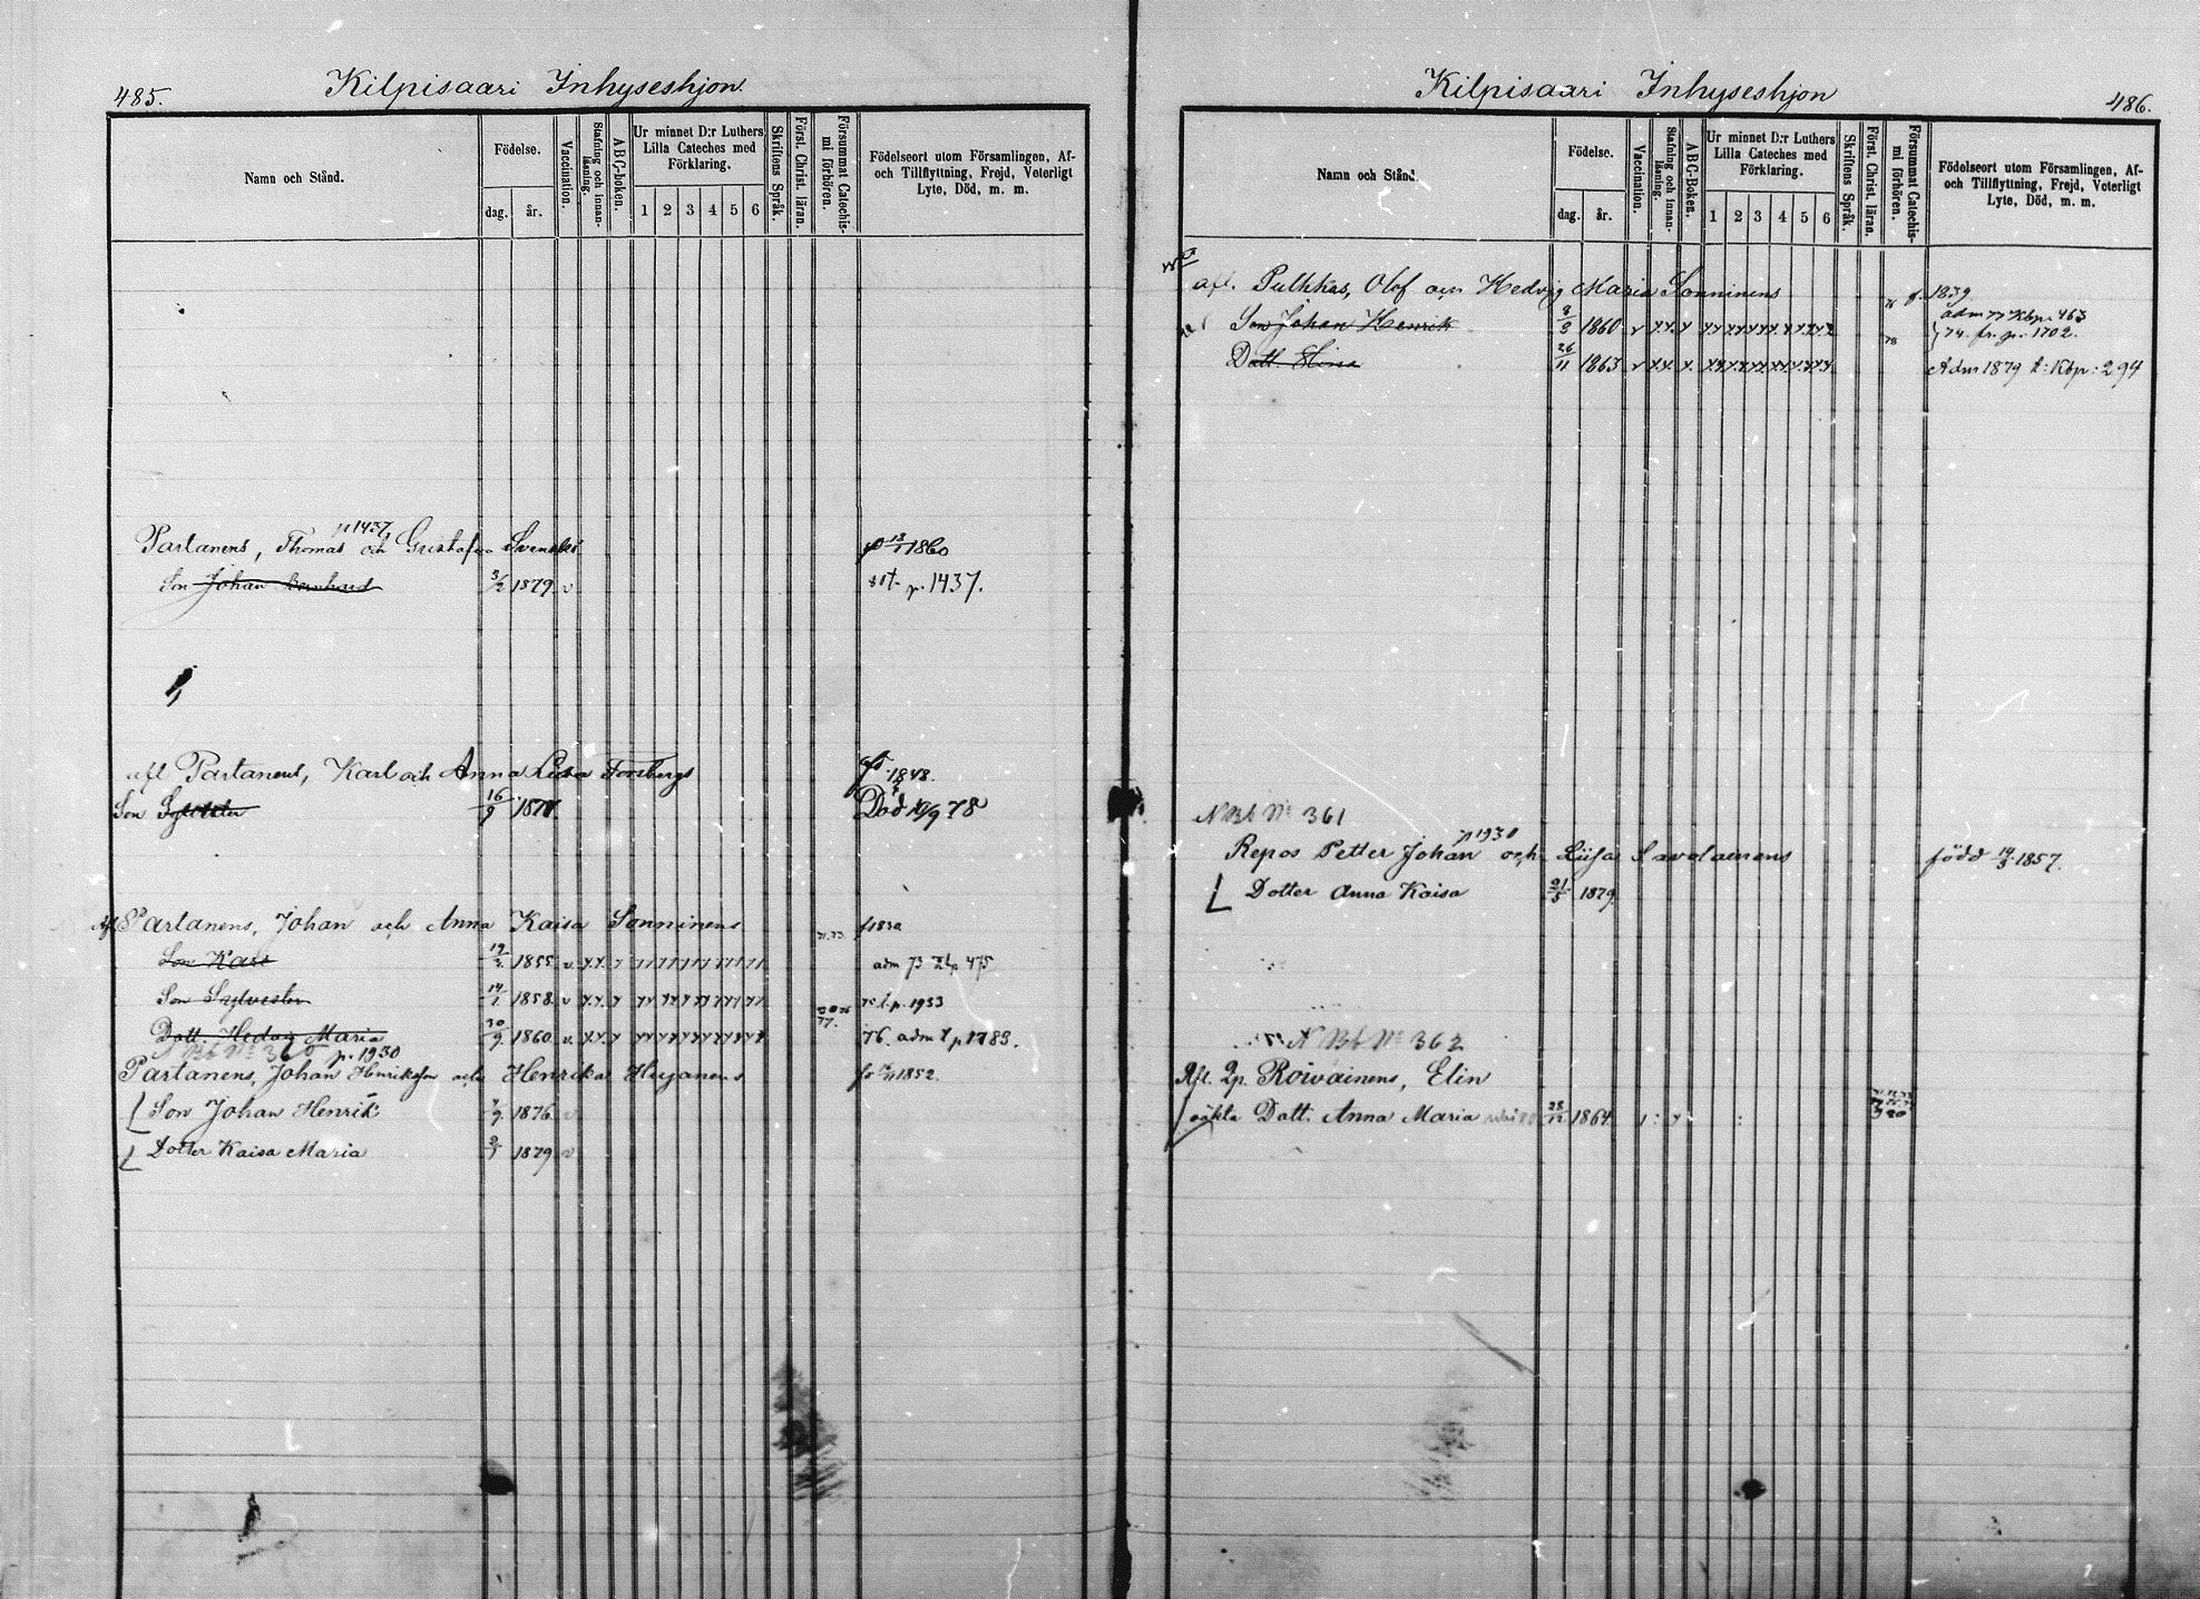 485.
Kilpisaari Inhyseshjon.
Namn och Stånd.
Födelse.
dag.
år.
Vaccination.
Stafning och innan-läsning.
A B C-boken.
Ur minnet D:r Luthers
Lilla Cateches med
Förklaring.
1 2 3 4 5 6
Skriftens Språk.
Först. Christ. läran.
Försummat Catechis-
mi förhören.
Födelseort utom Församlingen, Af-
och Tillflyttning, Frejd, Veterligt
Lyte, Död, m. m.
p 1437
Partanens, Thomas och Svensks 13/1 1860
Son Johan Bernhard 3/2 1879 v p. 1437.
afl Partanens, Karl och Anna Lisa Forsbergs 1848.
Son 16/9 Död 78
Afl Partanens, Johan och Anna Kaisa Sonninens
Son Karl 1855 v. adm 73 475
Son Sylvester 14/1 1858 v p. 1933
Dott. Hedvig Maria 30/9 1860 v. 76. adm
N Bb No 360 p. 1930
Partanens, Johan Henriksson och Henrika 1852.
Son Johan Henrik 1876. v
Dotter Kaisa Maria 1879 v
Kilpisaari Inhyseshjon
486.
Namn och Stånd.
Födelse.
dag.
år.
Vaccination.
Stafning och innan-läsning.
ABC-Boken.
Ur minnet D:r Luthers
Lilla Cateches med
Förklaring.
1 2 3 4 5 6
Skriftens Språk.
Först. Christ. läran.
Försummat Catechis-
mi förhören.
Födelseort utom Församlingen, Af-
och Tillflyttning, Frejd, Veterligt
Lyte, Död, m. m.
afl. Pulkkas, Olof och Hedvig Maria Sonninens 1839
adm 77 Kbp. 463
Son Johan Henrik 1860 v 74. fr. p. 1702.
Dott. 26/11 1863 v Adm 1879 Kbp: 294
N Bb No 361
p 1930
Repos Petter Johan och Liisa Savolainens född 14/3 1857.
Dotter Anna Kaisa 21/5 1879
N Bb No 362
Afl. Roivainens, Elin
oäkta Dott. Anna Maria 1864